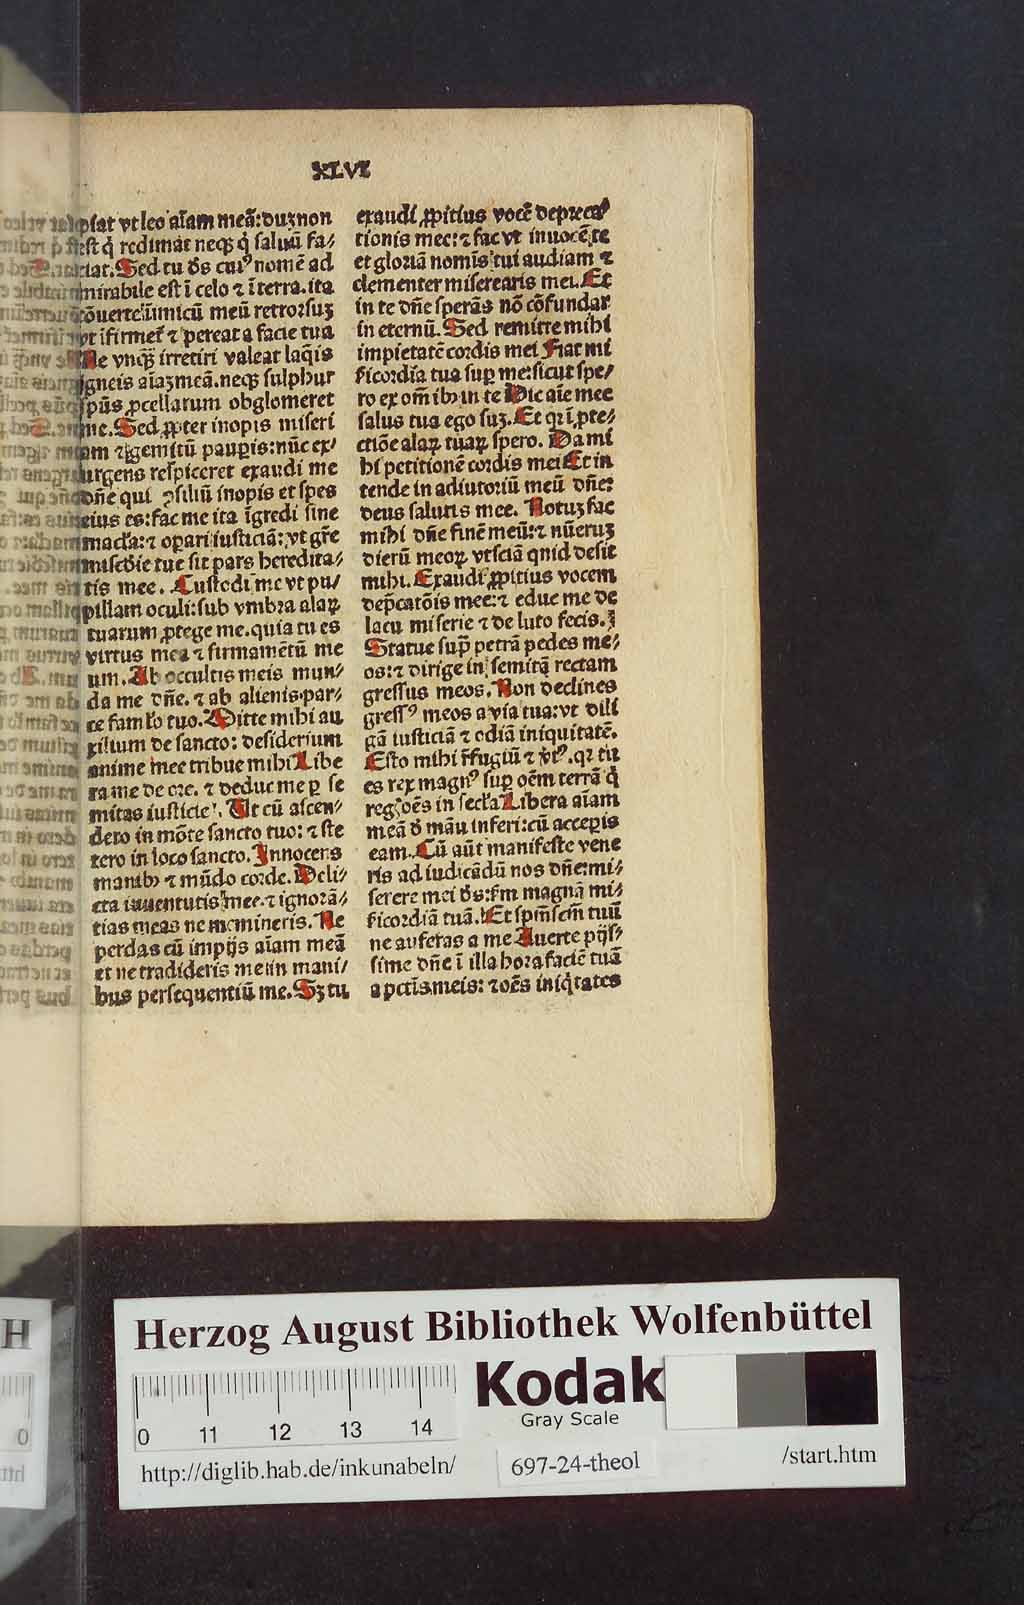 XLVI
piat vt leo aīam meā: duȝ non
est q̇ redimat neqȝ q̇ saluū fa/
ciat. Sed tu d̄s cui⁹ nomē ad
mirabile est ī celo ⁊ ī terra. ita
cōuerte inimicū meū retrorsuȝ
vt īfirmet̄ ⁊ pereat a facie tua
Ne vnqȝ irretiri valeat laq̇is
igneis aīaȝ meā. neqȝ sulphur
spūs ꝓcellarum obglomeret
me. Sed ꝓpter inopis miseri
am ⁊ gemitū pauꝑis: nūc ex/
urgens respiceret exaudi me
dn̄e qui ꝯsiliū inopis et spes
eius es: fac me ita īgredi sine
macl̄a: ⁊ oꝑari iusticiā: vt gr̄e
misc̄die tue sit pars heredita/
tis mee. Custodi me vt pu/
pillam oculi: sub vmbra alaꝝ
tuarum ꝓtege me. quia tu es
virtus mea ⁊ firmamētū me
um. Ab occultis meis mun/
da me dn̄e. ⁊ ab alienis par/
ce faml̄o tuo. Mitte mihi au
xilium de sancto: desiderium
anime mee tribue mihi Libe
ra me de ore. ⁊ deduc me ꝑ se
mitas iusticie. Ut cū ascen/
dero in mōte sancto tuo: ⁊ ste
tero in loco sancto. Innocens
manibꝫ ⁊ mūdo corde. Deli/
cta iuuentutis mee. ⁊ ignorā/
tias meas ne memineris. Ne
perdas cū impijs aīam meā
et ne tradideris me in mani/
bus persequentiū me. Sȝ tu
exaudi ꝓpitius vocē depreca
tionis mee: ⁊ fac vt inuocē te
et gloriā nomīs tui audiam ⁊
clementer miserearis mei. Et
in te dn̄e sperās nō cōfundar
in eternū. Sed remitte mihi
impietatē cordis mei Fiat mi
sicordia tua suꝑ me: sicut spe/
ro ex om̄ibꝫ in te Dic aīe mee
salus tua ego suȝ. Et qꝛ ī ꝓte/
ctiōe alaꝝ tuaꝝ spero. Da mi
hi petitionē cordis mei Et in
tende in adiutoriū meū dn̄e:
deus salutis mee. Notuȝ fac
mihi dn̄e finē meū: ⁊ nūeruȝ
dierū meoꝝ vt sciā quid desit
mihi. Exaudi ꝓpitius vocem
dep̄catōis mee: ⁊ educ me de
lacu miserie ⁊ de luto fecis. ⁊
Statue sup̄ petrā pedes me/
os: ⁊ dirige in semitā rectam
gressus meos. Non declines
gress⁹ meos a via tua: vt dili
gā iusticiā ⁊ odiā iniquitatē.
Esto mihi r̄fugiū ⁊ v̄t⁹. qꝛ tu
es rex magn⁹ suꝑ oēm terrā q̇
reg̃ oēs in secl̄a Libera aīam
meā d̄ māu inferi: cū acceꝑis
eam. Cū aūt manifeste vene
ris ad iudicādū nos dn̄e: mi/
serere mei d̄s: s̄m magnā mi/
sicordiā tuā. Et sp̄m sc̄m tuū
ne auferas a me Auerte pijs/
sime dn̄e ī illa hora faciē tuā
a pctīs meis: ⁊ oēs iniq̇tates
Herzog August Bibliothek Wolfenbüttel
0 11 12 13 14
Kodak
Gray Scale
http://diglib.hab.de/inkunabeln/
697-24-theol
/start.htm